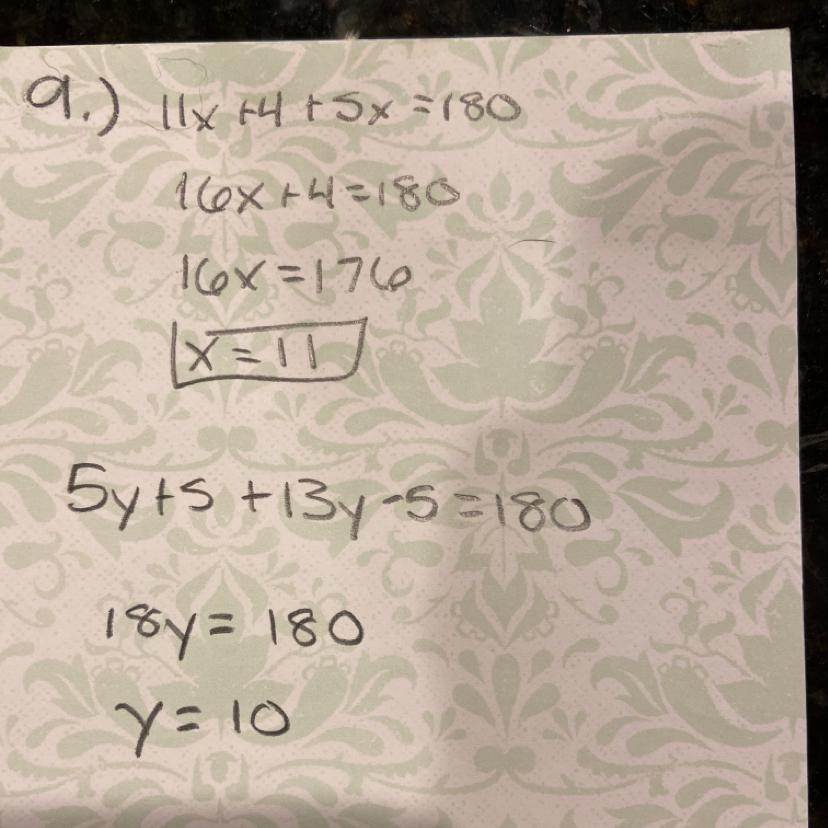 9.) 11x+4+5x=180
16x+4=180
16x=176
x=11
5y+5+13y-5=180
18y=180
y=10